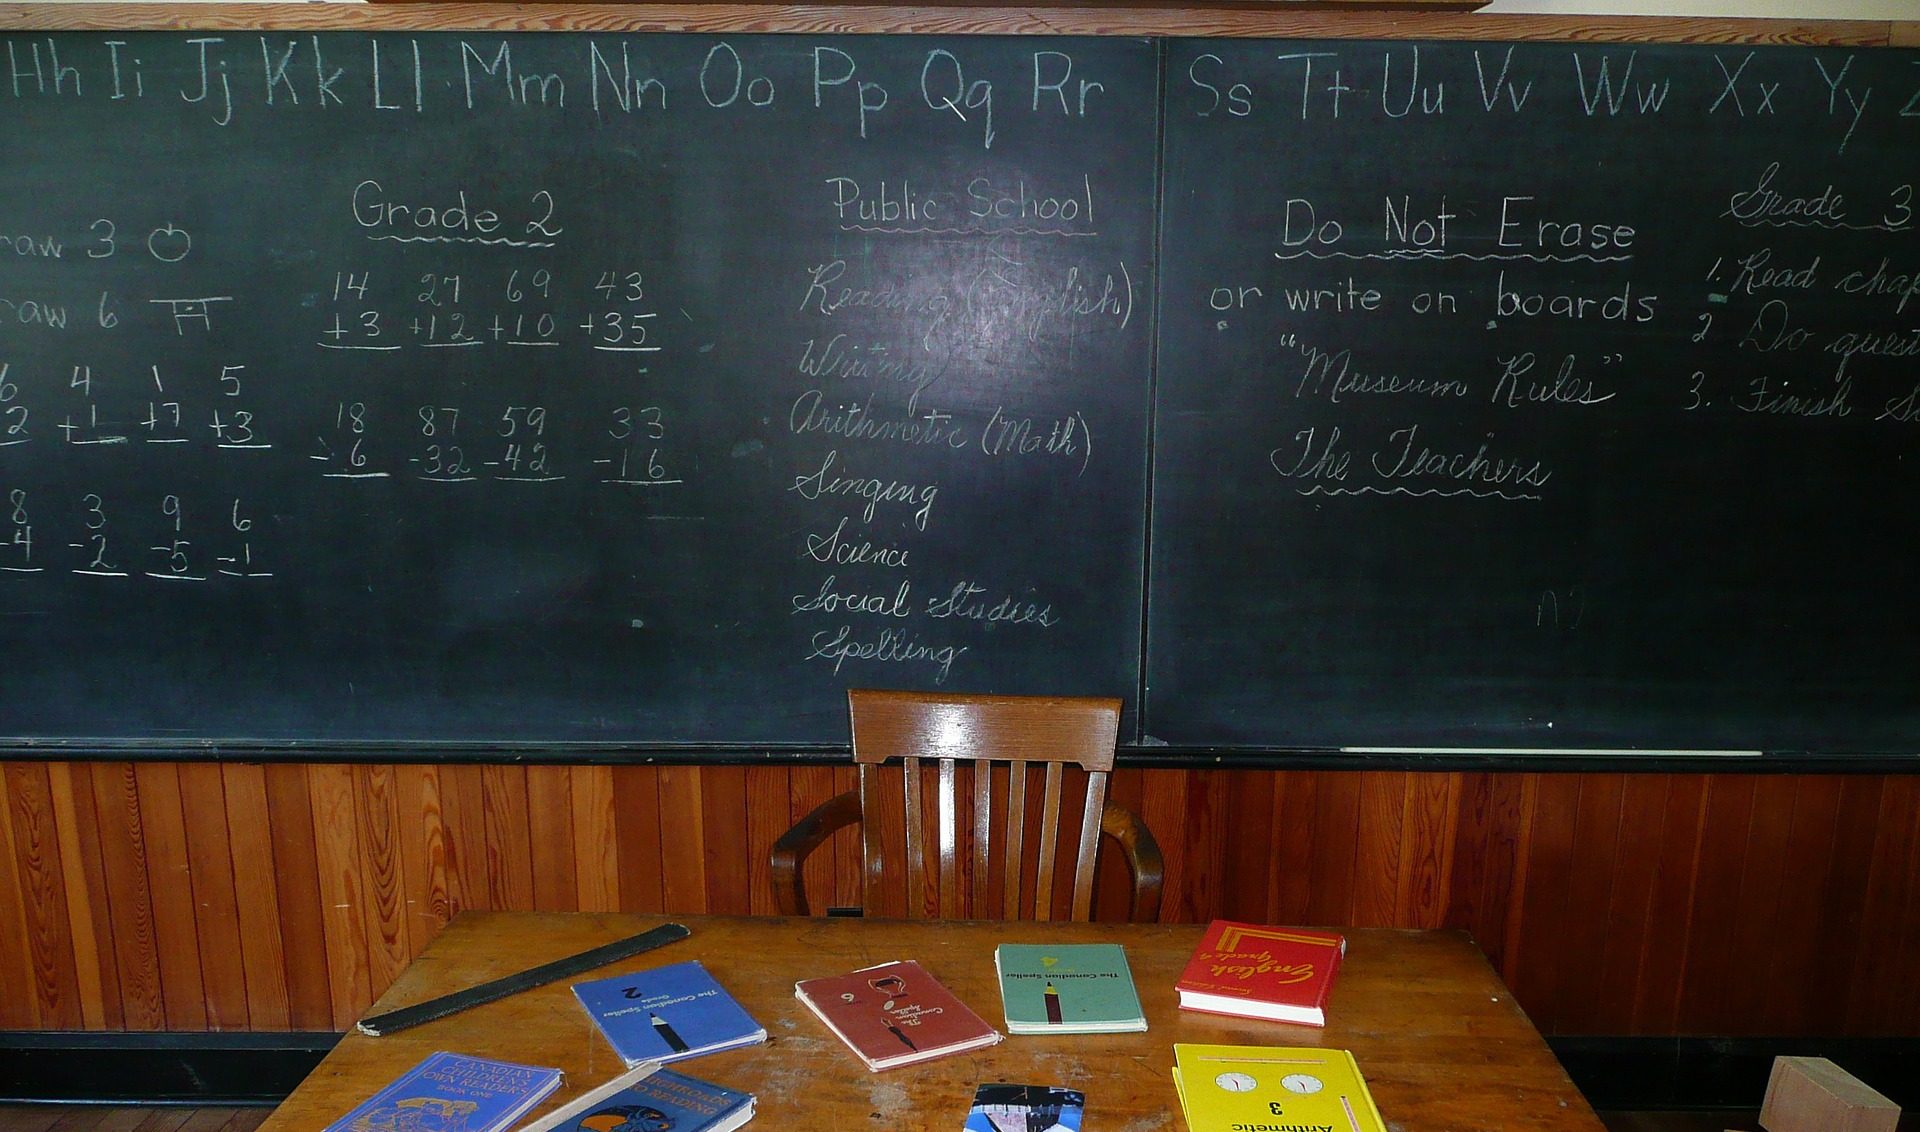 Hh Ii Jj Kk Ll Mm Nn Oo Pp Qq Rr Ss Tt Uu Vv Ww Xx Yy
3
6
4 1 5
2 +1 +7 +3
8 3 9 6
-4 -2 -5 -1
Grade 2
14 27 69 43
+3 +12 +10 +35
18 87 59 33
-6 -32 -42 -16
Public School
Reading (English)
Writing
Arithmetic (Math)
Singing
Science
Social Studies
Spelling
Do Not Erase
or write on boards
"Museum Rules"
The Teachers
Grade 3
1. Read
2 Do
3. Finish
The Canadian Speller
Grade
2
The
Canadian
Speller
6
The Canadian Speller
4
English
Grade
Second Edition
CANADIAN
CHILDREN'S
OWN READERS
BOOK ONE
READING
Arithmetic
3